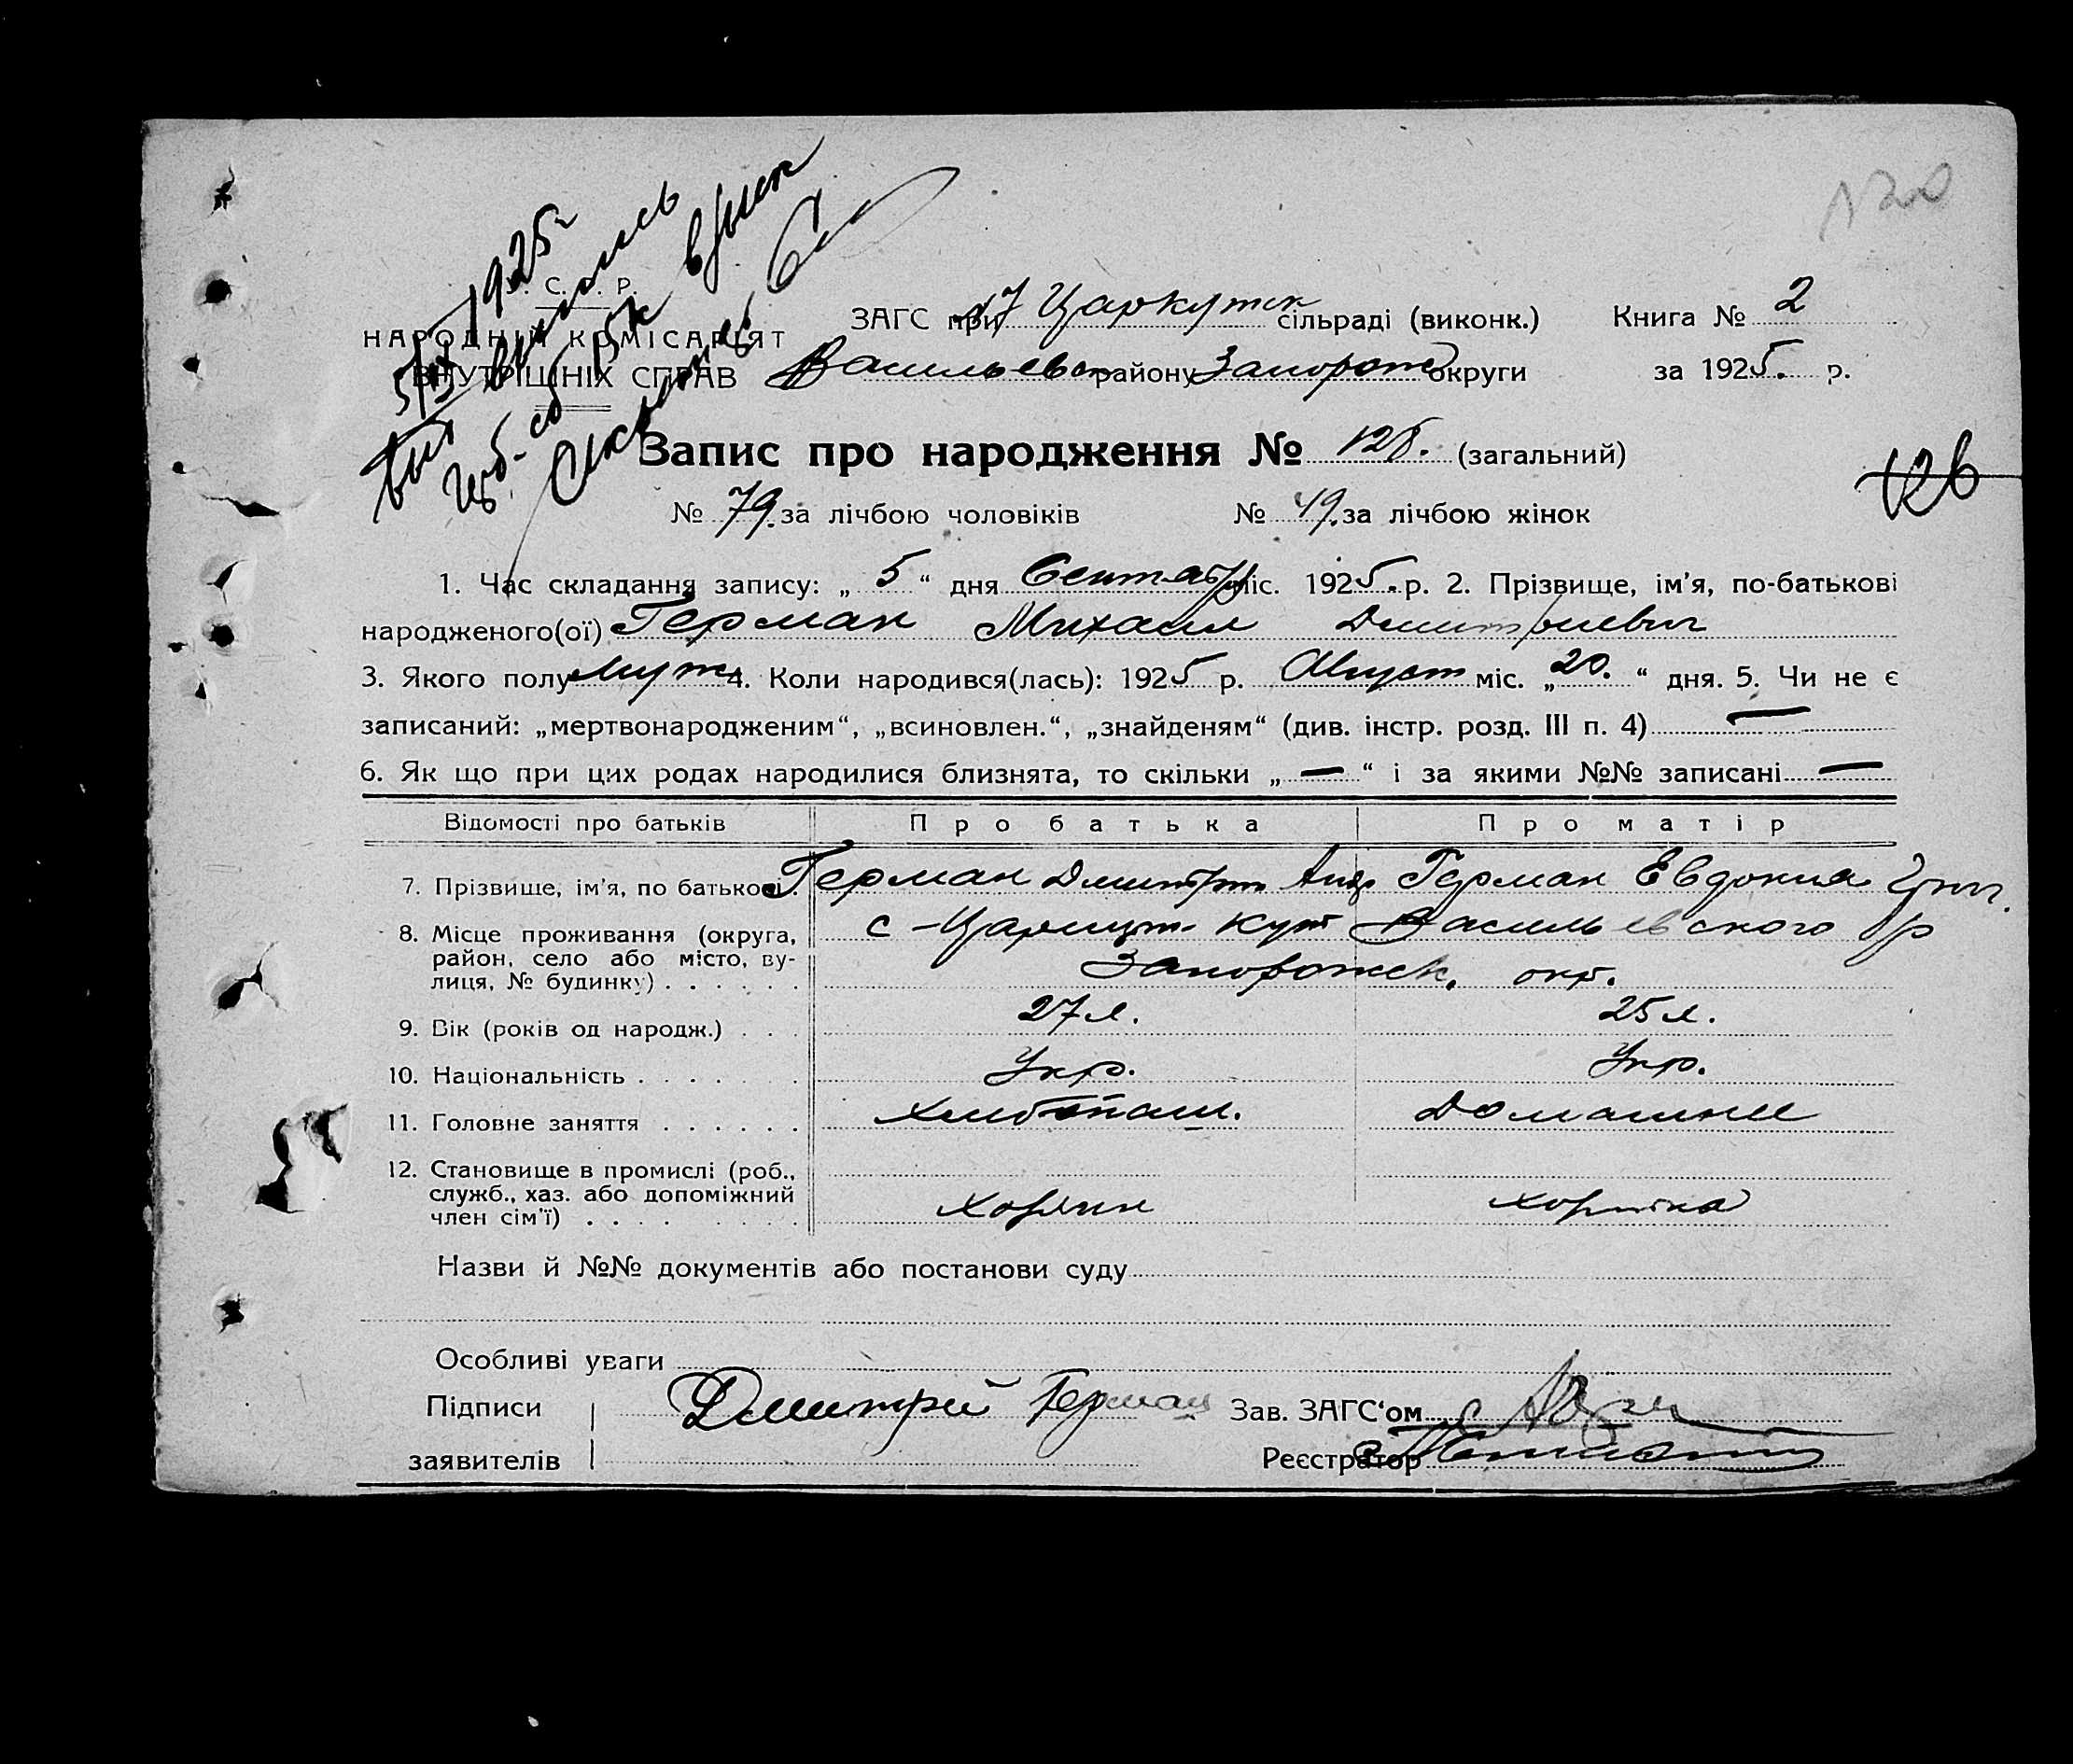 1925г
С. Р.
НАРОДНІЙ КОМІСАРІЯТ
ВНУТРІШНІХ СПРАВ
ЗАГС при Царкутск сільраді (виконк.) Книга № 2
Васильевск району Запорож округи за 1925. р.
Запис про народження № 128. (загальний)
126
№ 79. за лічбою чоловіків № 49. за лічбою жінок
1. Час складання запису: „ 5 “ дня Сентября міс. 1925. р. 2. Прізвище, ім'я, по-батькові
народженого(ої) Герман Михаил Дмитриевич
3. Якого полу муж 4. Коли народився(лась): 1925 р. Август міс. „ 20. “ дня. 5. Чи не є
записаний: „мертвонародженим“, „всиновлен.“, „знайденям“ (див. інстр. розд. III п. 4) —
6. Як що при цих родах народилися близнята, то скільки „ — “ і за якими №№ записані —
Відомості про батьків Про батька Про матір
7. Прізвище, ім'я, по батькові. Герман Дмитрий Андр Герман Евдокия Григ.
8. Місце проживання (округа, район, село або місто, вулиця, № будинку) . . . . . . с - Царицын Кут Васильевского р
Запорожск. окр.
9. Вік (років од народж.) . . . 27 л. 25 л.
10. Національність . . . . . . . Укр. Укр.
11. Головне заняття . . . . . . Хлебопаш. Домашнее
12. Становище в промислі (роб.,
служб., хаз. або допоміжний
член сім'ї) . . . . . . . . Хозяин хозяйка
Назви й №№ документів або постанови суду
Особливі уваги
Підписи Дмитрий Герман Зав. ЗАГС'ом
заявителів Реєстратор